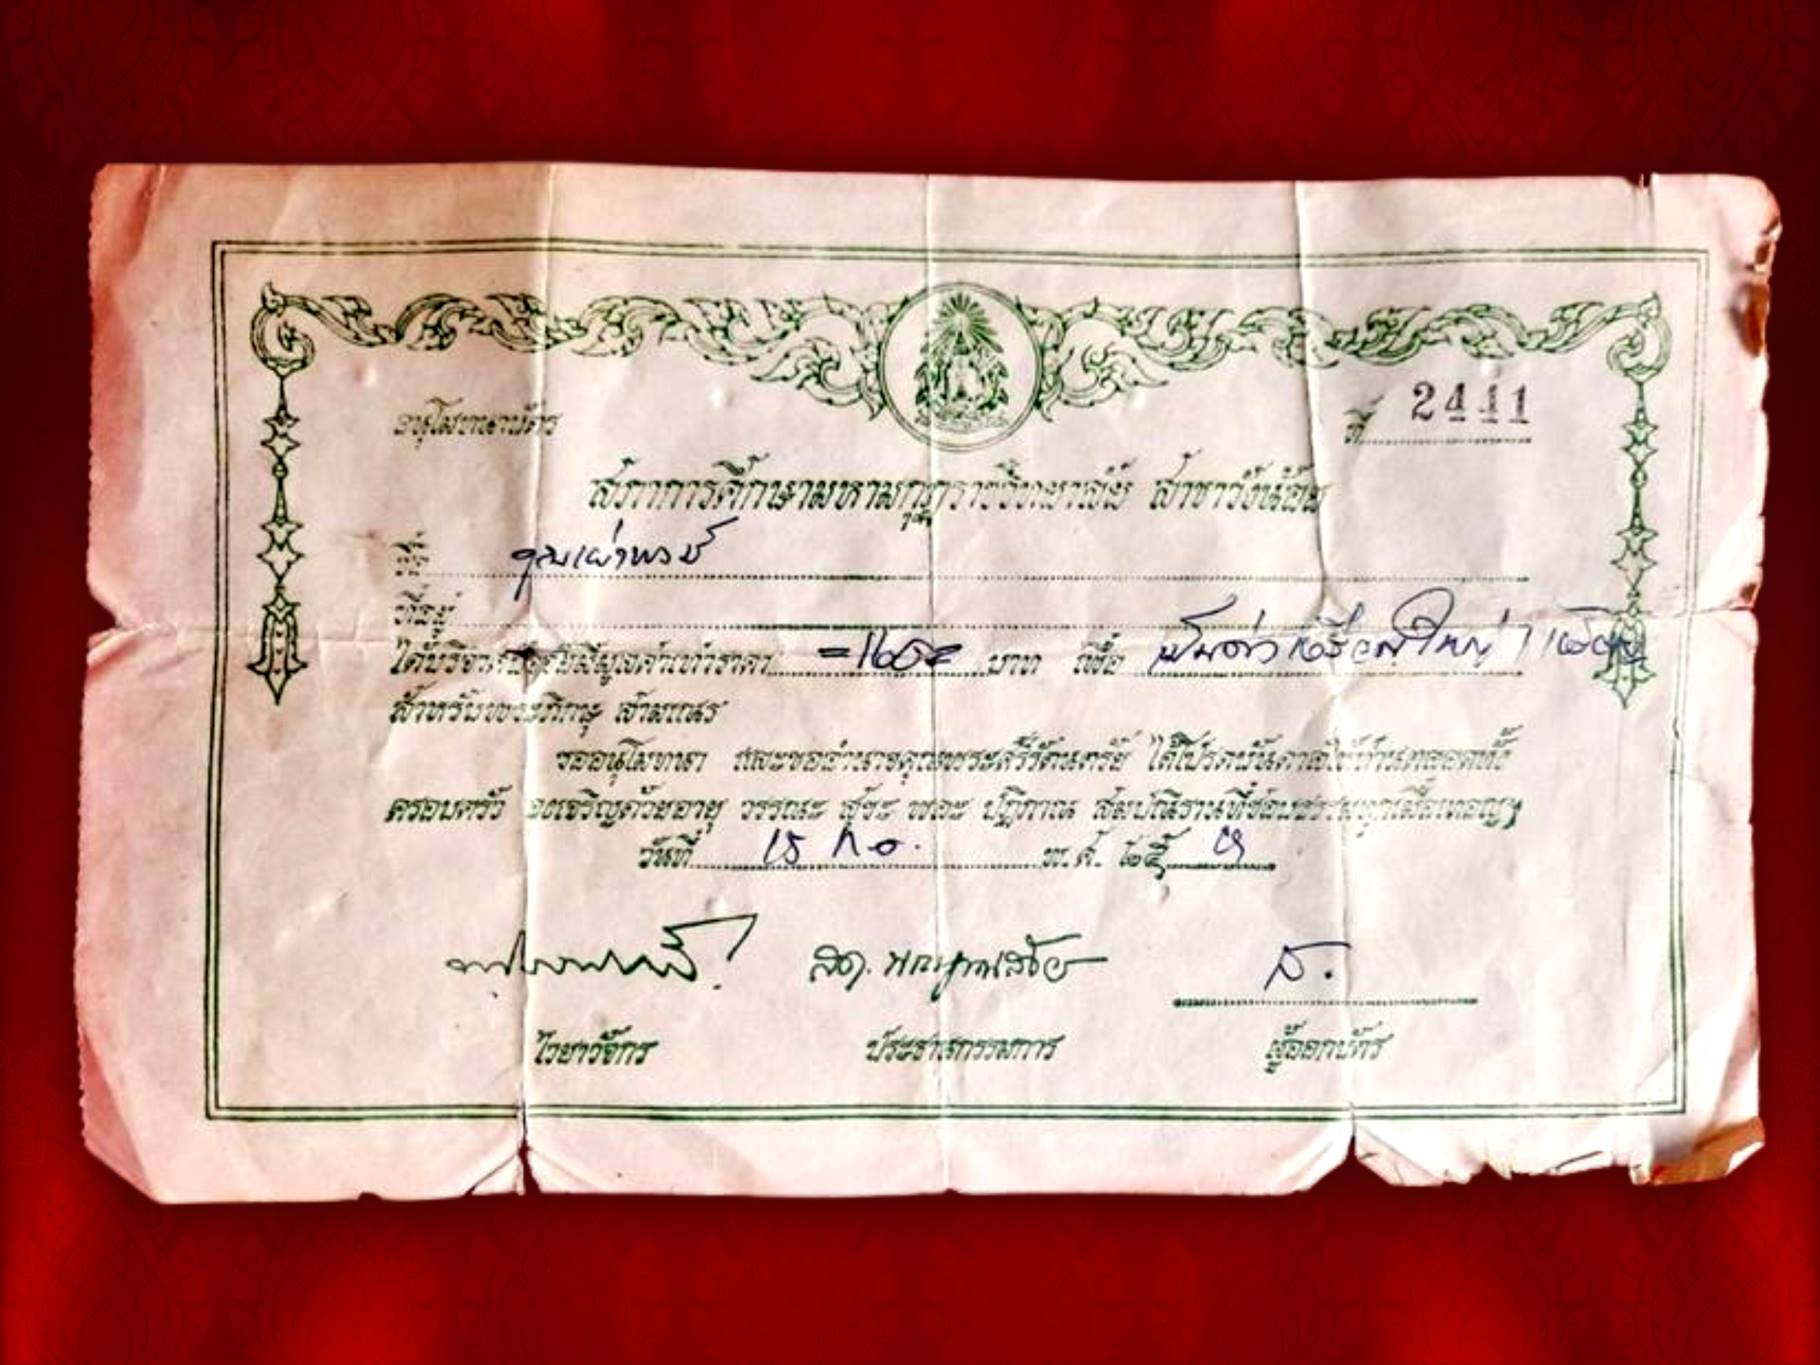 อนุโมทนาบัตร
ที่ 2441
สภาการศึกษามหามกุฏราชวิทยาลัย สาขาวังน้อย
ชื่อ คุณเผ่าพงษ์
ที่อยู่
ได้บริจาค มูลค่าเท่าราคา บาท เพื่อ
สำหรับพระภิกษุ สามเณร
ขออนุโมทนา และขออำนาจคุณพระศรีรัตนตรัย ได้โปรดบันดาลให้ท่านตลอดทั้ง
ครอบครัว จงเจริญด้วยอายุ วรรณะ สุขะ พละ ปฏิภาณ ธนสารที่ชอบธรรมทุกเมื่อเทอญฯ
วันที่ ๑๕ ก.ค. พ.ศ. ๒๕
ส.
ไวยาวัจกร ประธานกรรมการ ผู้ออกบัตร